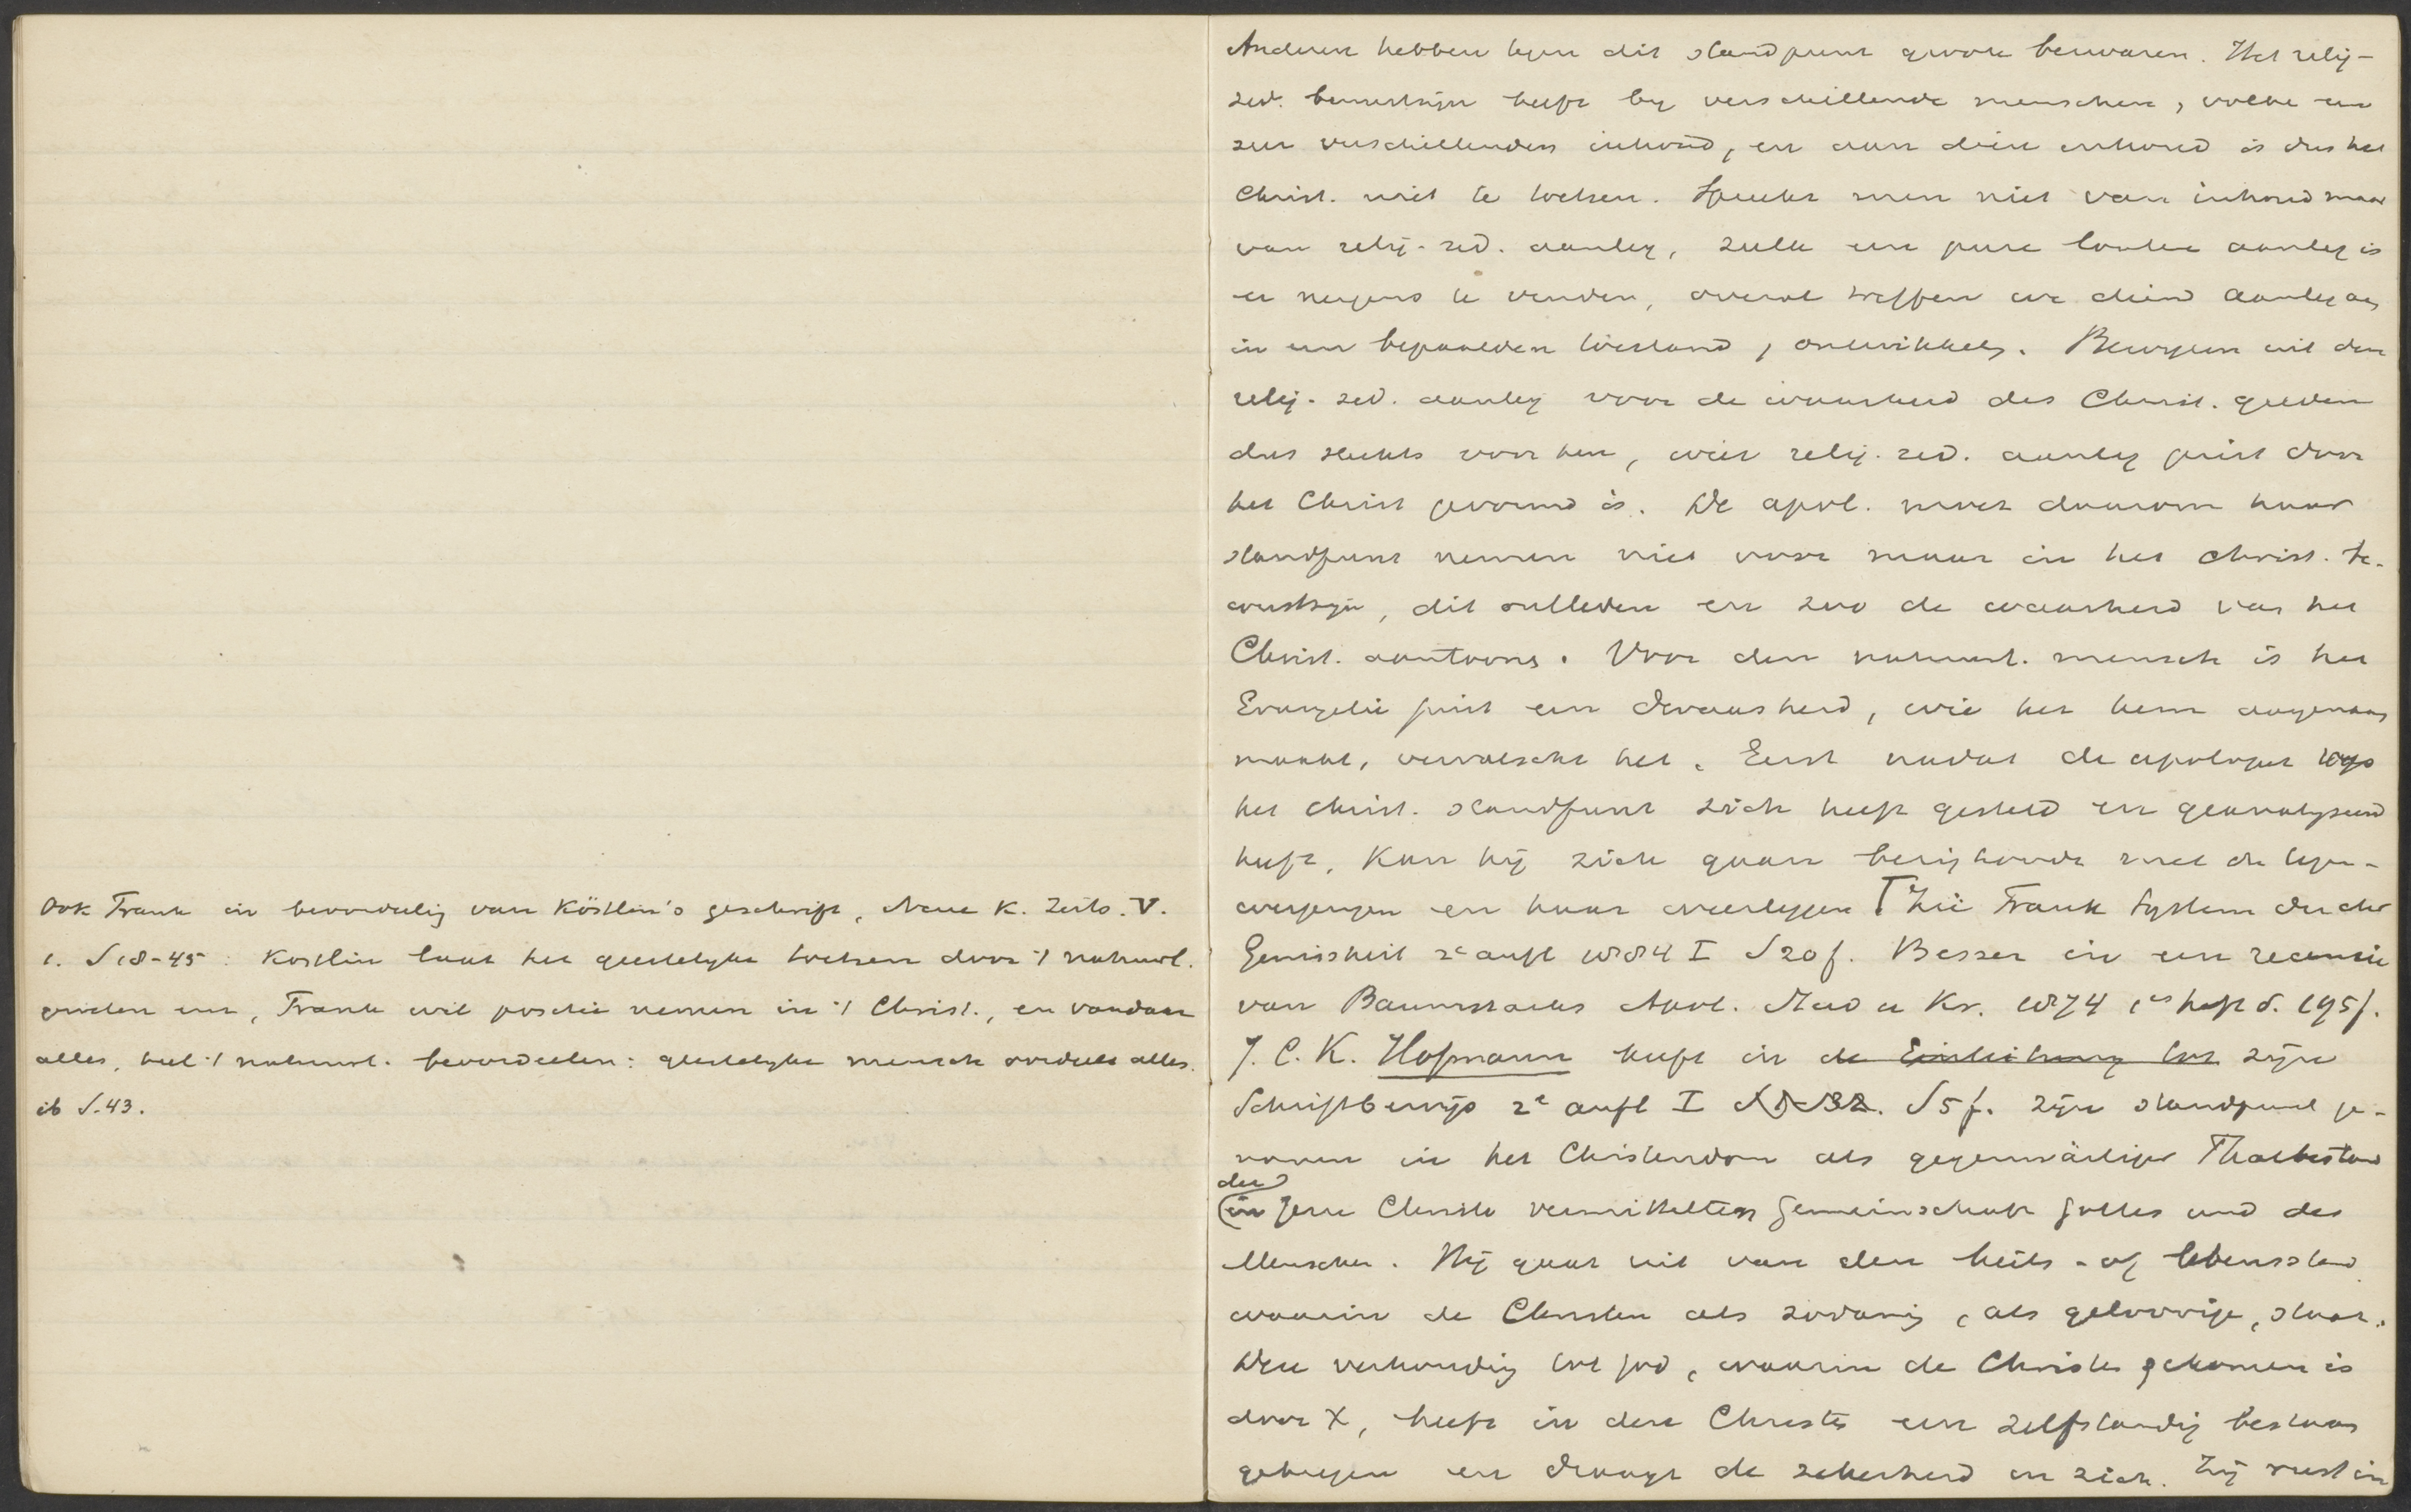 Ook Frank in beoordeelig van Köstlin's geschrift, Neue K. Zeits. V.
1. S 18-45: Kostlin laat het geestelijke toetsen door 't natuurl.
Frank wil positie nemen in 't Christ., en vandaar
alles, heel 't natuurl. beoordeelen: geestelijke mensch oordeelt alles.
ib S. 43.
Anderen hebben tegen dit standpunt groote bezwaren. Het relig-
zed. bewustzijn heeft by verschillende menschen, volken een
zeer verschillenden inhoud, en aan dien inhoud is dus het
Christ. niet te toetsen. Spreekt men niet van inhoud maar
van relig-zed. aanleg, zulk een pure loutere aanleg is
er nergens te vinden, overal treffen we dien aanleg aan
in een bepaalden toestand, ontwikkelg. Bewijzen uit den
relig. zed. aanleg voor de waarheid des Christ. gelden
dus slechts voor hen, wier relig. zed. aanleg juist door
het Christ gevormd is. De apol. moet daarom haar
standpunt nemen niet voor maar in het christ. be-
wustzijn, dit ontleden en zoo de waarheid van het
Christ. aantoonen. Voor den natuurl. mensch is het
Evangelie juist een dwaasheid, wie het hem aangenaam
maakt, vervalscht het. Eerst nadat de apologeet op
het christ. standpunt zich heeft gesteld en geanalyseerd
heeft, kan hij zich gaan bezig houden met de tegen-
werpingen en haar weerleggen Zie Frank System der chr
Gewissheit 2e aufl 1884 I S 20 f. Besser in een recensie
van Baumstarks Apol. Stud u Kr. 1874 1es heft S. 195 f.
J. C. K. Hofmann heeft in de Einleitung tot zijn
Schriftbewijs 2e aufl I S 5 f. zijn standpunt ge-
nomen in het Christendom als gegenwärtiger Thatbestand
der
in Jesu Christo vermittelten Gemeinschaft Gottes und des
Menschen. Hij gaat uit van den heils- of levensstand
waarin de Christen als zoodanig, als geloovige, staat.
Deze verhoudig tot God, waarin de Christen gekomen is
door X, heeft in den Christen een zelfstandig bestaan
gekregen en draagt de zekerheid in zich. Zij rust in